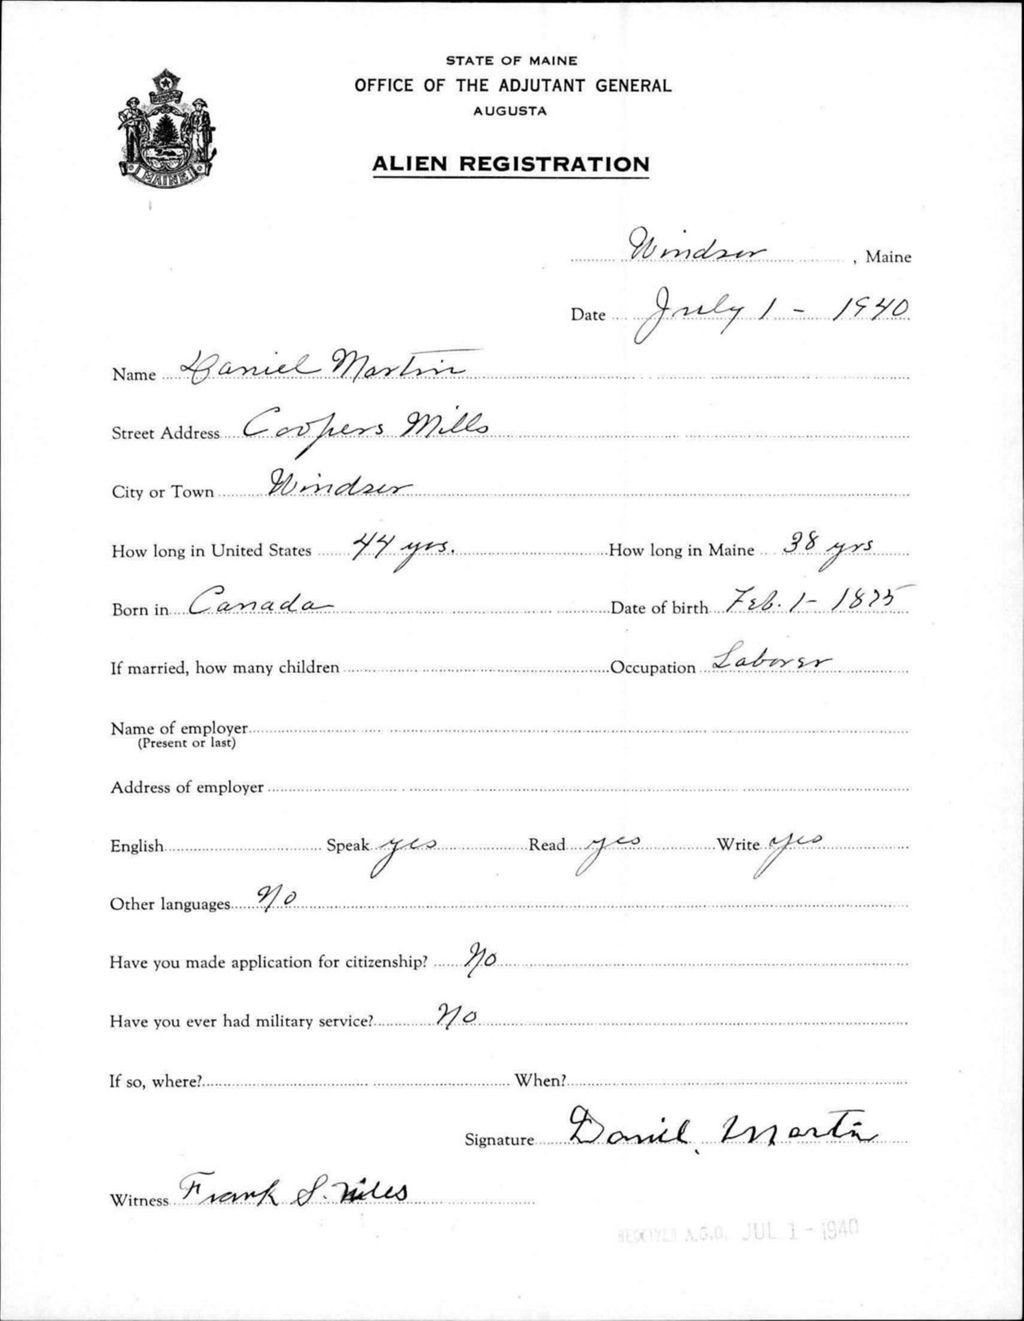 STATE OF MAINE
OFFICE OF THE ADJUTANT GENERAL
AUGUSTA
ALIEN REGISTRATION
MAINE
Windsor, Maine
Date July 1 - 1940
Name Daniel Martin
Street Address Coopers Mills
City or Town Windsor
How long in United States 44 yrs. How long in Maine 38 yrs
Born in Canada Date of birth Feb. 1 - 1875
If married, how many children Occupation Laborer
Name of employer
(Present or last)
Address of employer
English Speak yes Read yes Write yes
Other languages No
Have you made application for citizenship? No
Have you ever had military service? No
If so, where? When?
Signature Daniel Martin
Witness Frank S. Niles
RECEIVED A.G.O. JUL 1 - 1940